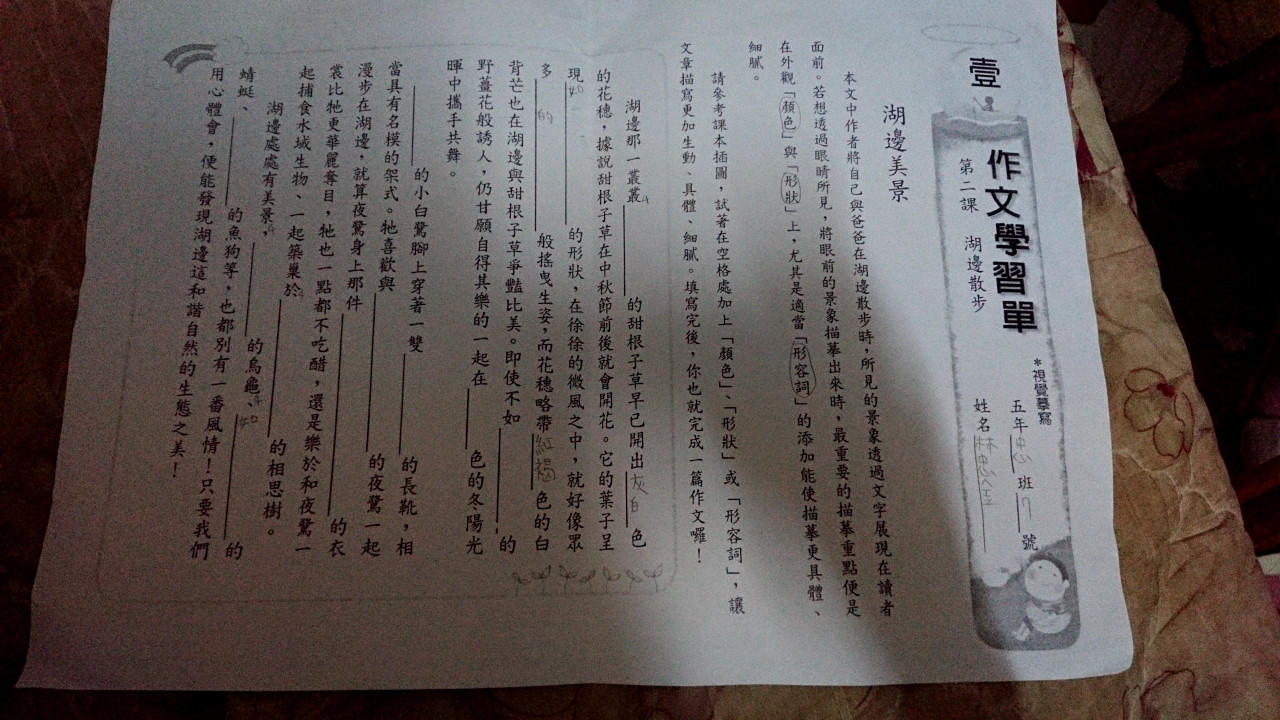 壹
作文學習單
*視覺摹寫
第二課 湖邊散步
五年忠班 號
姓名林
湖邊美景
本文中作者將自己與爸爸在湖邊散步時，所見的景象透過文字展現在讀者
面前。若想透過眼睛所見，將眼前的景象描摹出來時，最重要的描摹重點便是
在外觀「顏色」與「形狀」上，尤其是適當「形容詞」的添加能使描摹更具體、
細膩。
請參考課本插圖，試著在空格處加上「顏色」、「形狀」或「形容詞」，讓
文章描寫更加生動、具體、細膩。填寫完後，你也就完成一篇作文囉！
湖邊那一叢叢 的甜根子草早已開出灰白色
的花穗，據說甜根子草在中秋節前後就會開花。它的葉子呈
現 的形狀，在徐徐的微風之中，就好像眾
多 的 般搖曳生姿，而花穗略帶紅褐色的白
背芒也在湖邊與甜根子草爭豔比美。即使不如 的
野薑花般誘人，仍甘願自得其樂的一起在 色的冬陽光
暉中攜手共舞。
的小白鷺腳上穿著一雙 的長靴，相
當具有名模的架式。牠喜歡與 的夜鷺一起
漫步在湖邊，就算夜鷺身上那件 的衣
裳比牠更華麗奪目，牠也一點都不吃醋，還是樂於和夜鷺一
起捕食水域生物、一起築巢於 的相思樹。
湖邊處處有美景， 的烏龜、 的
蜻蜓、 的魚狗等，也都別有一番風情！只要我們
用心體會，便能發現湖邊這和諧自然的生態之美！